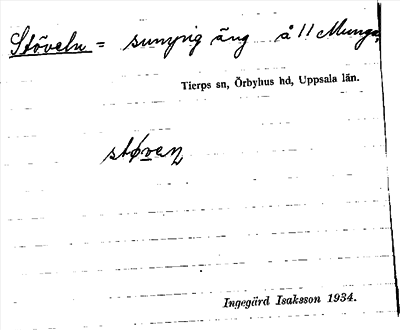 Stöveln = sumpig äng å 11 Munga,
Tierps sn, Örbyhus hd, Uppsala län.
støven
Ingegärd Isaksson 1934.